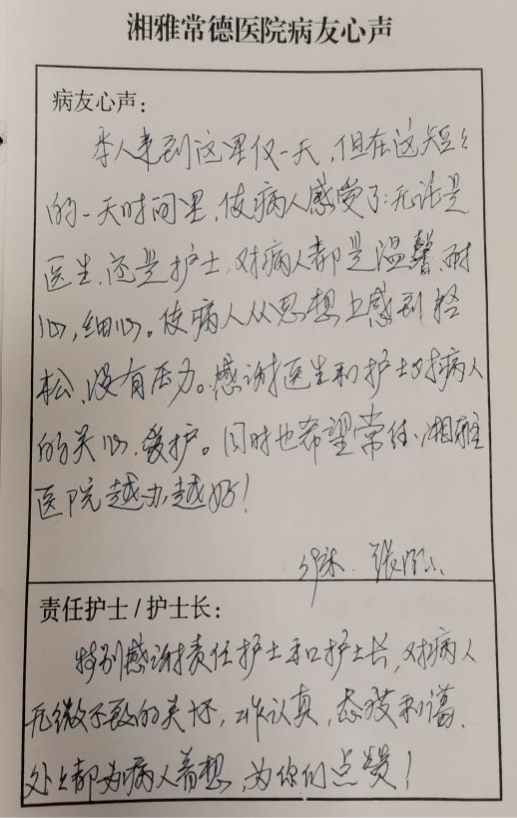 湘雅常德医院病友心声
病友心声：
本人来到这里仅一天，但在这短々
的一天时间里，使病人感受了：无论是
医生、还是护士，对病人都是温馨、耐
心，细心。使病人从思想上感到轻
松、没有压力。感谢医生和护士对病人
的关心、爱护。同时也希望常德湘雅
医院越办越好！
张
责任护士/护士长：
特别感谢责任护士和护士长，对病人
无微不致的关怀，工作认真，态度和谐、
处々都为病人着想，为你们点赞！